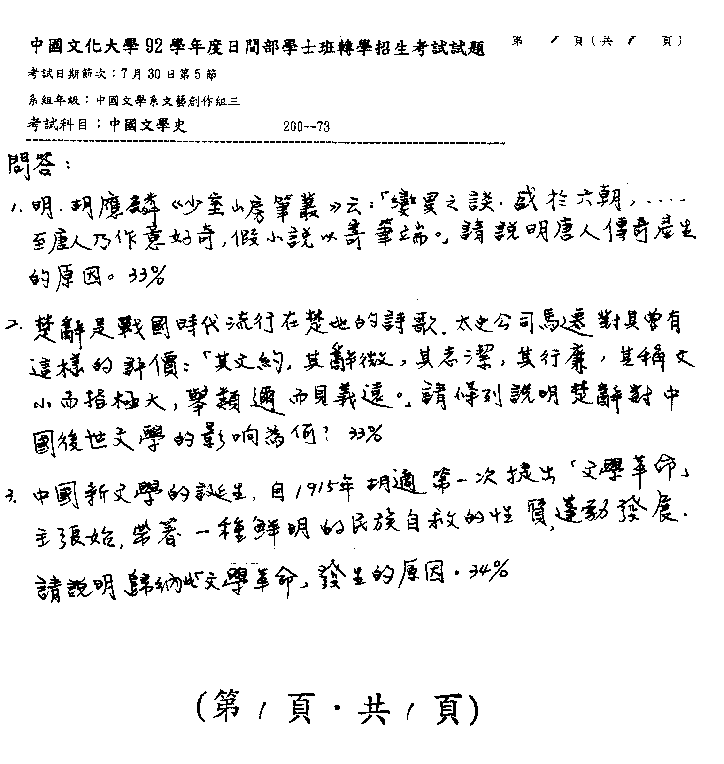 中國文化大學92學年度日間部學士班轉學招生考試試題 第 1 頁(共 1 頁)
考試日期節次：7月30日第5節
系組年級：中國文學系文藝創作組三
考試科目：中國文學史 200--73
問答：
1. 明．胡應麟《少室山房筆叢》云：「變異之談．盛於六朝，.....
至唐人乃作意好奇，假小說以寄筆端。」請說明唐人傳奇產生
的原因。33%
2. 楚辭是戰國時代流行在楚地的詩歌．太史公司馬遷對其曾有
這樣的評價：「其文約，其辭微，其志潔，其行廉，其稱文
小而指極大，舉類邇而見義遠。」請條列說明楚辭對中
國後世文學的影响為何？33%
3. 中國新文學的誕生，自1915年胡適第一次提出「文學革命」
主張始，帶著一種鮮明的民族自救的性質，蓬勃發展．
請說明歸納「文學革命」發生的原因．34%
(第 1 頁．共 1 頁)